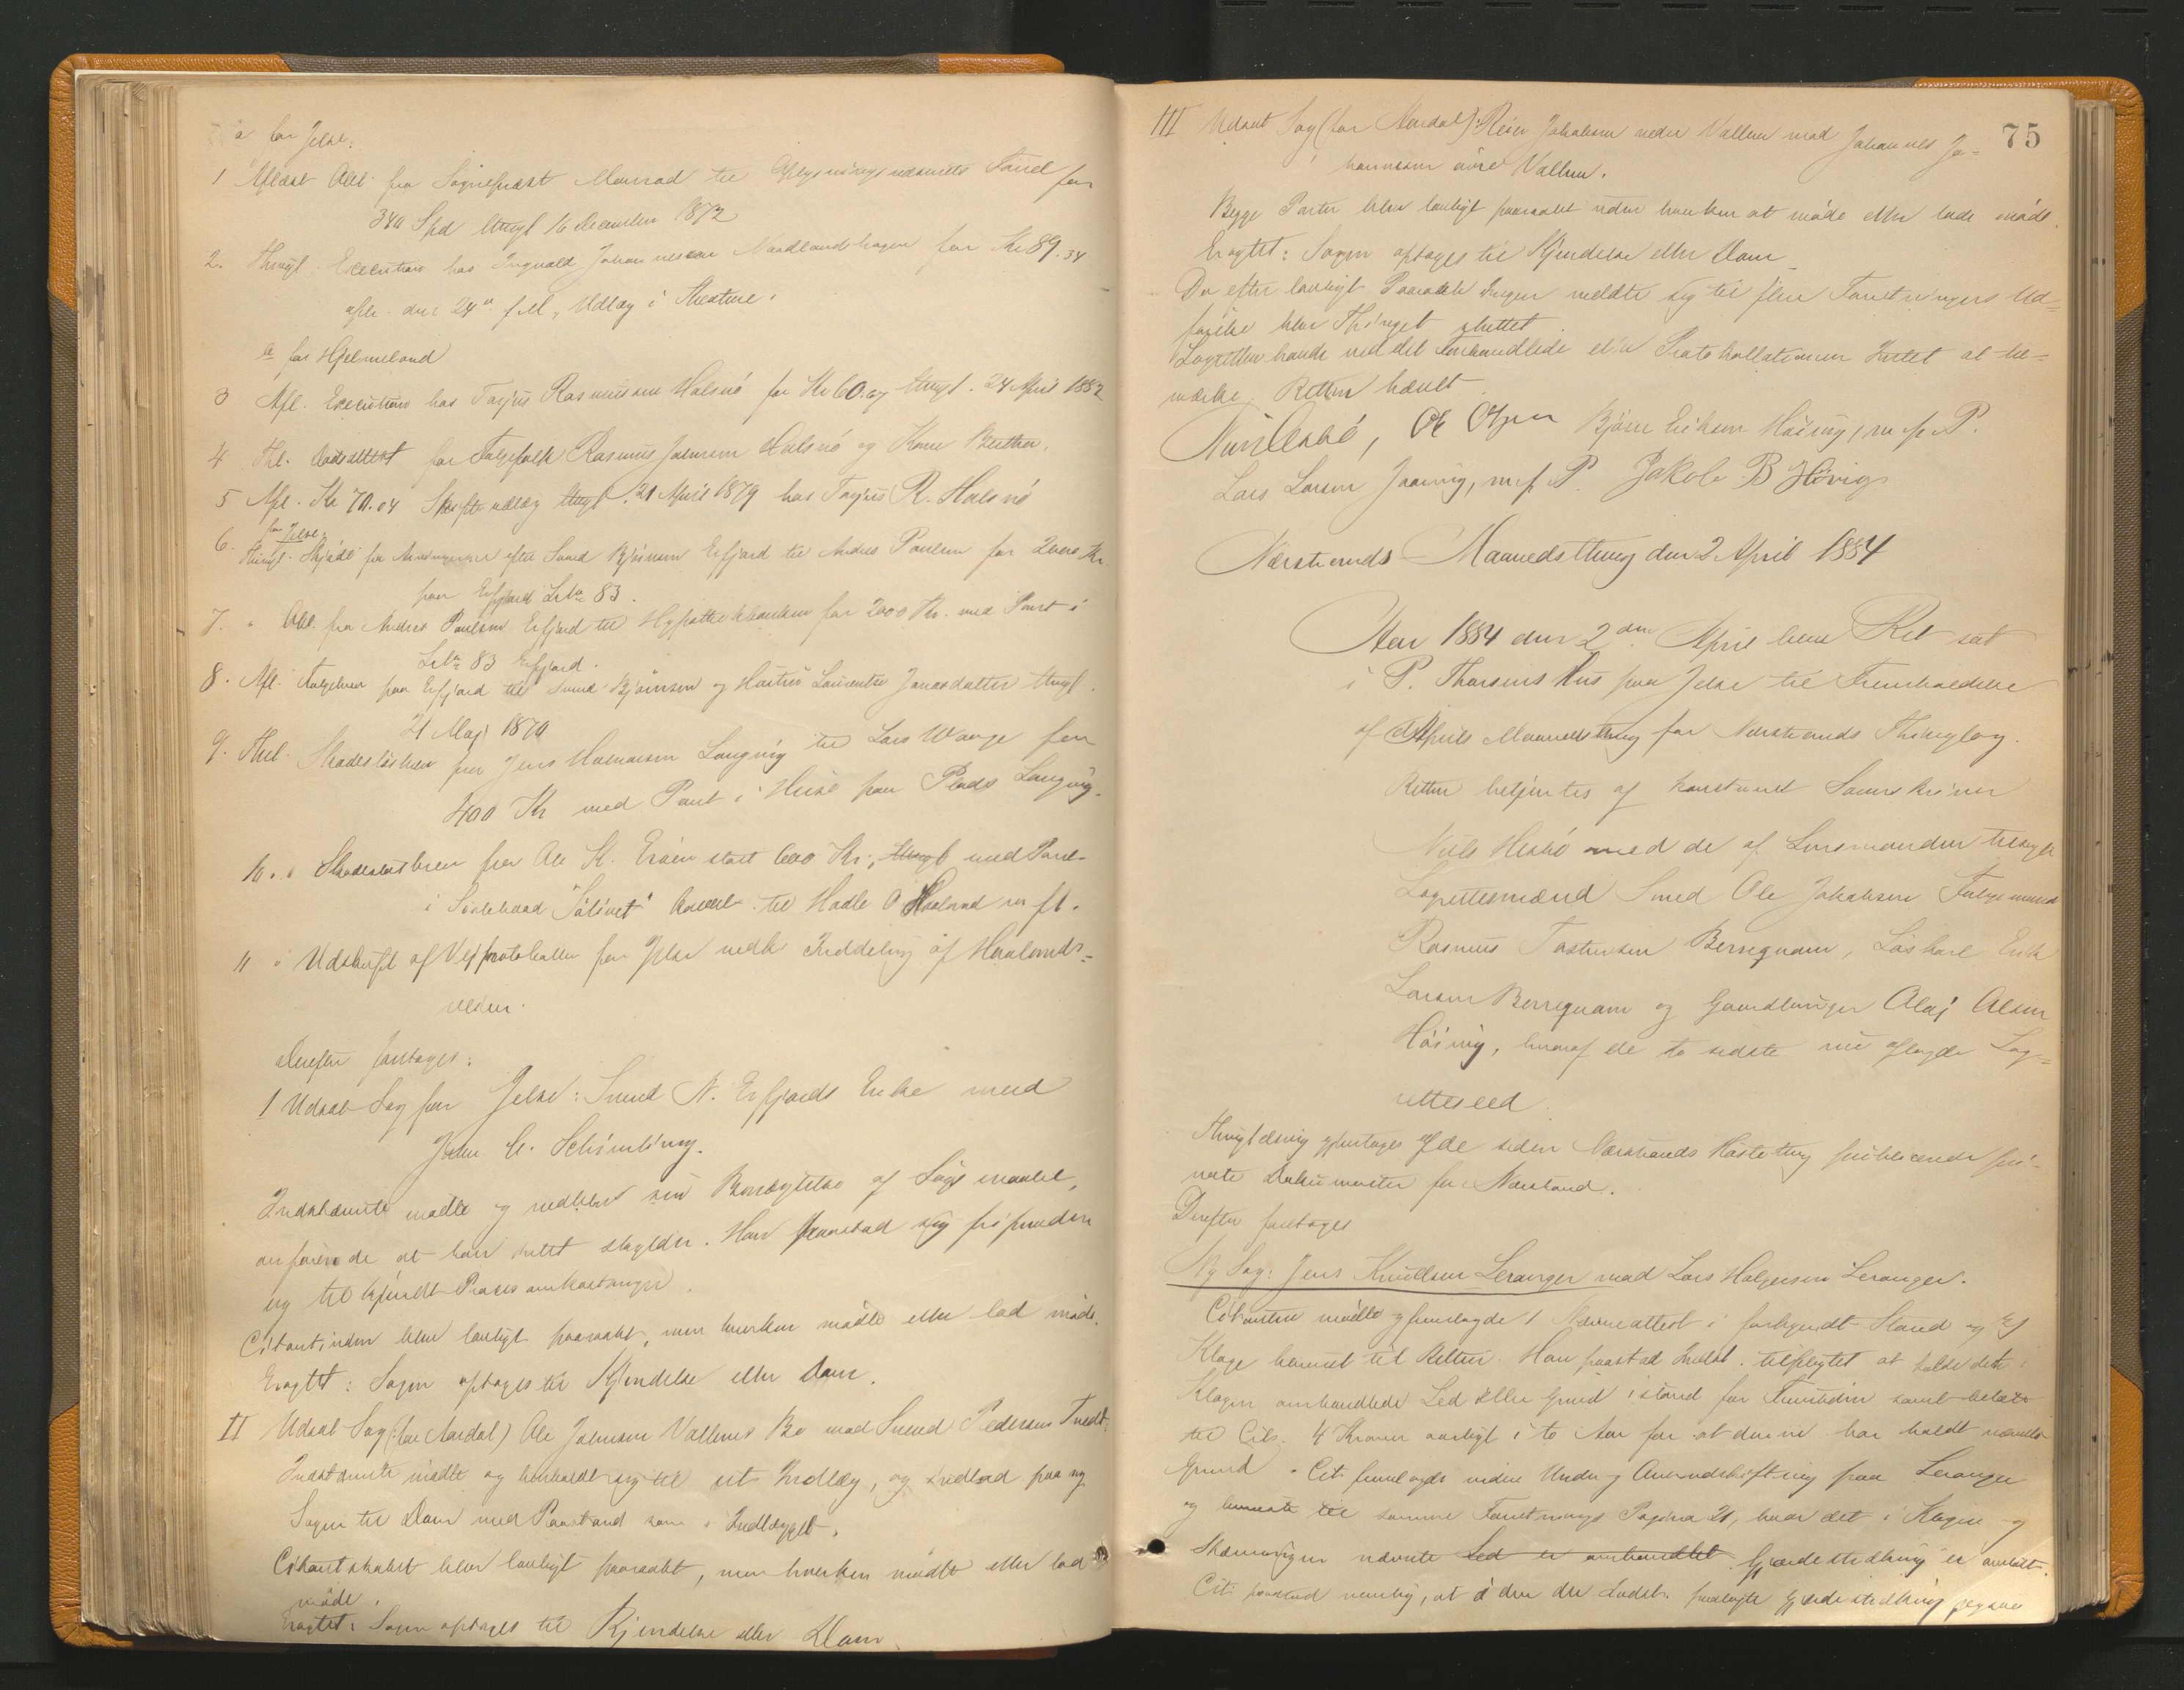 a for Jelse:
1 Aflæst Obl. fra Sognepræst Monrad til Oplysningsvæsenets Fond for
340 Spd thingl 16 December 1872
2. Thingl. Execution hos Ingvald Johannessen Nordlandshagen for Kr 89.34
afh. den 24de f.M., Udlæg i
b for Hjelmeland
3 Afl. Execution hos Tarjus Rasmussen Halsnö for Kr 60.07 thingl. 24 April 1882
4 Thl. for Folgefolk Rasmus Johnsen Halsnö og Kone Berthe.
5 Afl. Kr 70.04 Skifteudlæg thingl. 21 April 1879 hos Tarjus R. Halsnö
for Jelse
6. Thingl. Skjöde fra Arvingerne efter Svend Björnsen Erfjord til Andres Poulsen for 2000 Kr.
paa Erfjord Lb№ 83.
7. " Obl. fra Andres Poulsen Erfjord til Hypothekbanken for 2000 Kr. med Pant i
Lb№ 83 Erfjord.
8. Afl. Folgebrev paa Erfjord til Svend Björnsen og Hustru Laurentse Jonasdatter thingl.
21 Maj 1870
9. Thl. Skadeslösbrev fra Jens Langvig til Lars Waage for
400 Kr med Pant i Huse paa Plads Langvig.
10. " Skadeslösbrev fra Ole K. stort 600 Kr., thingl med Pant
i til Hadle O Haaland m fl.
11 " Udskrift af Vejprotokollen for Jelse vedk Inddeling af Haalands-
veien.
Derefter foretoges:
I Udsat Sag for Jelse: Svend N. Erfjords Enke mod
John E. Schimling.
Indstævnte mödte og nedlagde sin Benægtelse af Sögsmaalet,
anförende at han intet skylder. Han paastod sig frifunden
og tilkjendt Procesomkostninger.
Citantinden blev lovligt paaraabt, men hverken mödte eller lod möde.
Eragtet: Sagen optages til Kjendelse eller Dom.
II Udsat Sag (for Aardal) Ole Johnsen Vallens Bo mod Svend Pedersen Tvedt.
Indstævnte mödte og henholdt sig til sit Indlæg, og indlod paa ny
Sagen til Dom med Paastand som i Indlægget.
Citantskabet blev lovligt paaraabt, men hverken mödte eller lod
möde.
Eragtet: Sagen optages til Kjendelse eller Dom.
75
III Udsat Sag (for Aardal) Reier Jakobsen nedre Vallen mod Johannes Jo-
hannesen övre Vallen.
Begge Parter blev lovligt paaraabt uden hverken at möde eller lade möde.
Eragtet: Sagen optages til Kjendelse eller Dom
Da efter lovligt Paaraab Ingen meldte sig til flere Forretningers Ud-
förelse blev Thinget sluttet
Lagrettet havde ved det Forhandlede eller Protokollationen Intet at be-
mærke. Retten hævet
Niels Hesbö, Björn Eriksen Hösing, m.f.P.
Lars Larsen, m.f.P. Jakob B Hövig
Nærstrands Maanedsthing den 2 April 1884
Aar 1884 den 2den April blev Ret sat
i P. Thorsens Hus paa Jelse til Fremholdelse
af Aprils Maanedsthing for Nærstrands Thinglag.
Retten betjentes af konstitueret Sorenskriver
Niels Hesbö med de af Lensmanden tilsagte
Lagrettesmænd Svend Ole Jakobsen Folgemand
Rasmus Tostensen Berrequam, Löskarl Erik
Larsen Berrequam og Gaardbruger Olaj Olsen
Hösing, hvoraf de to sidste nu aflagde Lag-
retteseed.
Thinglæsning foretoges af de siden Nærstrands Höstething publicerede pri-
vate Dokumenter for Nærstrand.
Derefter foretoges
Ny Sag: Jens Knudsen Leranger mod Lars Holgersen Leranger.
Citanten mödte og fremlagde 1 attest i forkyndt Stand og
Klage henvist til Retten. Han paastod Indst. tilpligtet at holde det i
Klagen omhandlede Led eller Grind istand for Fremtiden samt betale
til Cit. 4 Kroner aarligt i to Aar for at denne har holdt nævnte
Grind. Cit. fremlagde videre Under og Overudskiftning paa Leranger
og henviste til samme Forretnings Pagina 21, hvor det i Klagen og
Stævningen nævnte Led er omhandlet Gjærdestrækning er omtalt.
Cit. paastod nemlig, at i den der Indst. paalagte Gjærdestrækning